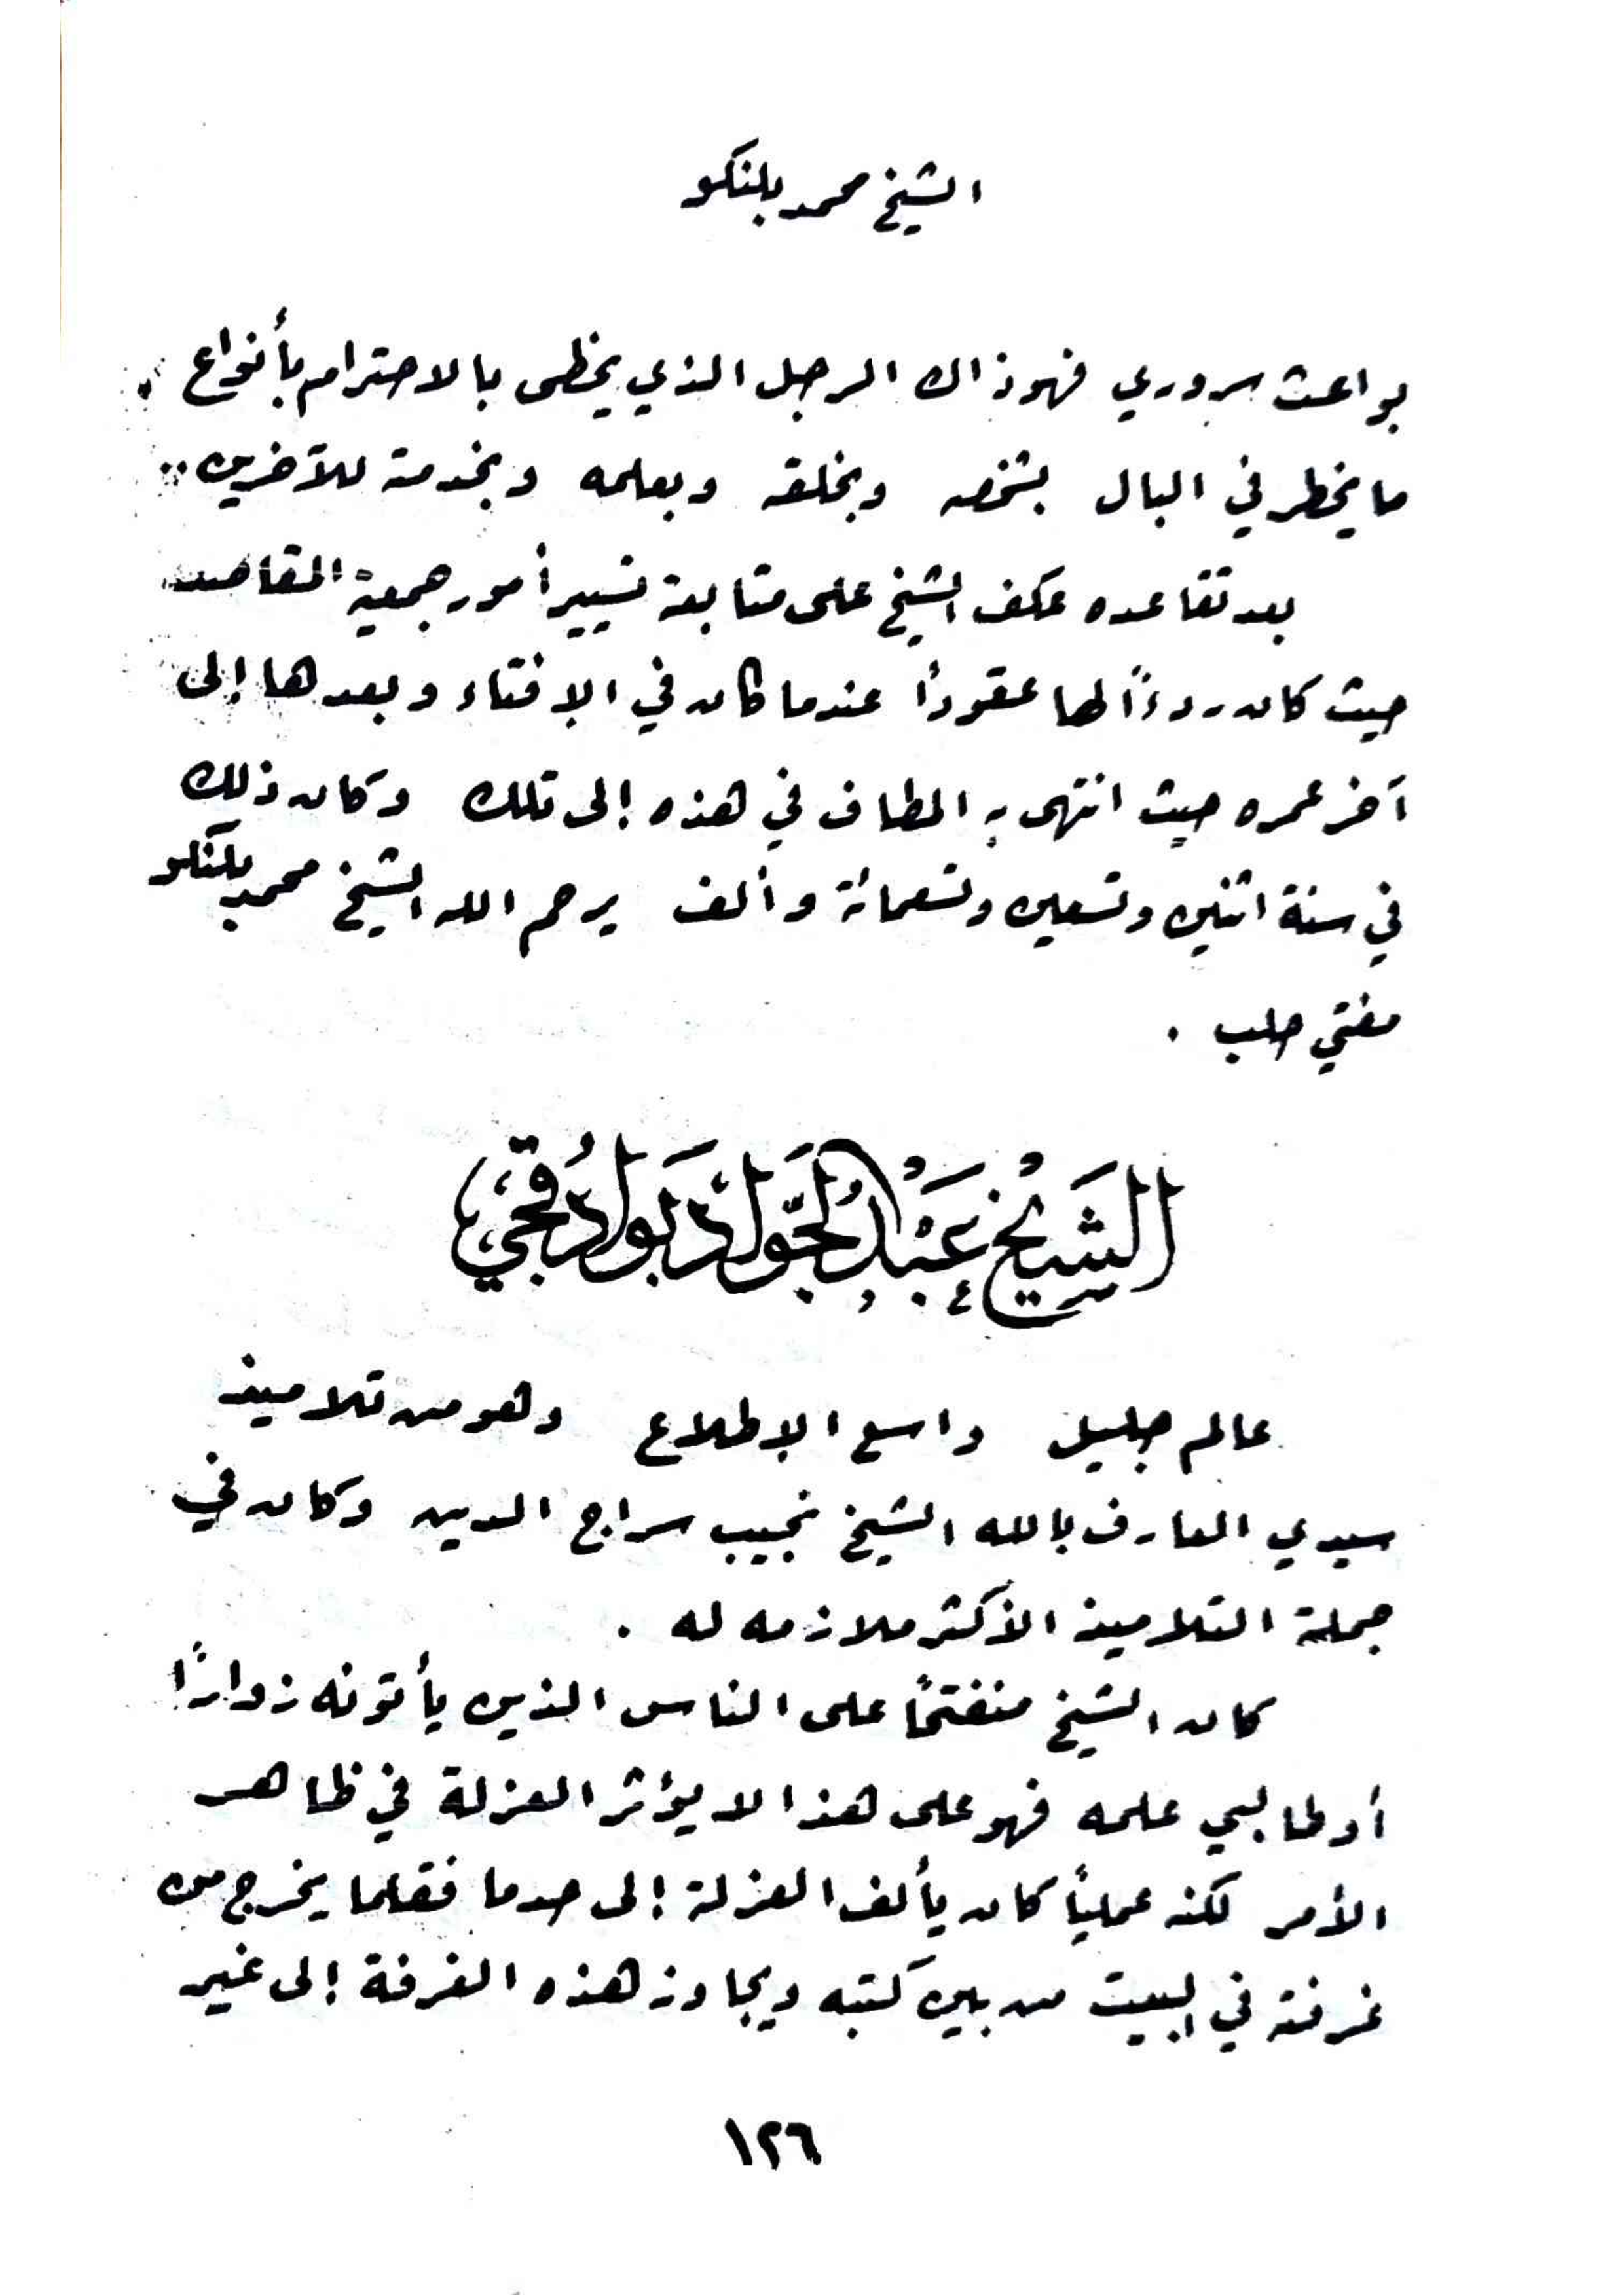 الشيخ محمد بلنكو
بواعث سروري فهو ذاك الرجل الذي يحظى بالاحترام بأنواع
ما يخطر في البال بشخصه وبخلقه وبعلمه وبخدمته للآخرين ..
بعد تقاعده عكف الشيخ على متابعة تسيير أمور جمعية المقاصد
حيث كان ردءاً لها عقوداً عندما كان في الإفتاء وبعدها إلى
آخر عمره حيث انتهى به المطاف في هذه إلى تلك وكان ذلك
في سنة اثنين وتسعين وتسعمائة وألف يرحم الله الشيخ محمد بلنكو
مفتي حلب .
الشَيْخ عَبْدُ الجَوَاد بَوَادُقجي
عالم جليل واسع الإطلاع وهو من تلاميذ
سيدي العارف بالله الشيخ نجيب سراج الدين وكان في
جملة التلاميذ الأكثر ملازمه له .
كان الشيخ منفتحاً على الناس الذين يأتونه زواراً
أو طالبي علمه فهو على هذا لا يؤثر العزلة في ظاهر
الأمر لكنه عملياً كان يألف العزلة إلى حد ما فقلما يخرج من
غرفته في البيت من بين كتبه ويجاوز هذه الغرفة إلى غير
١٢٦